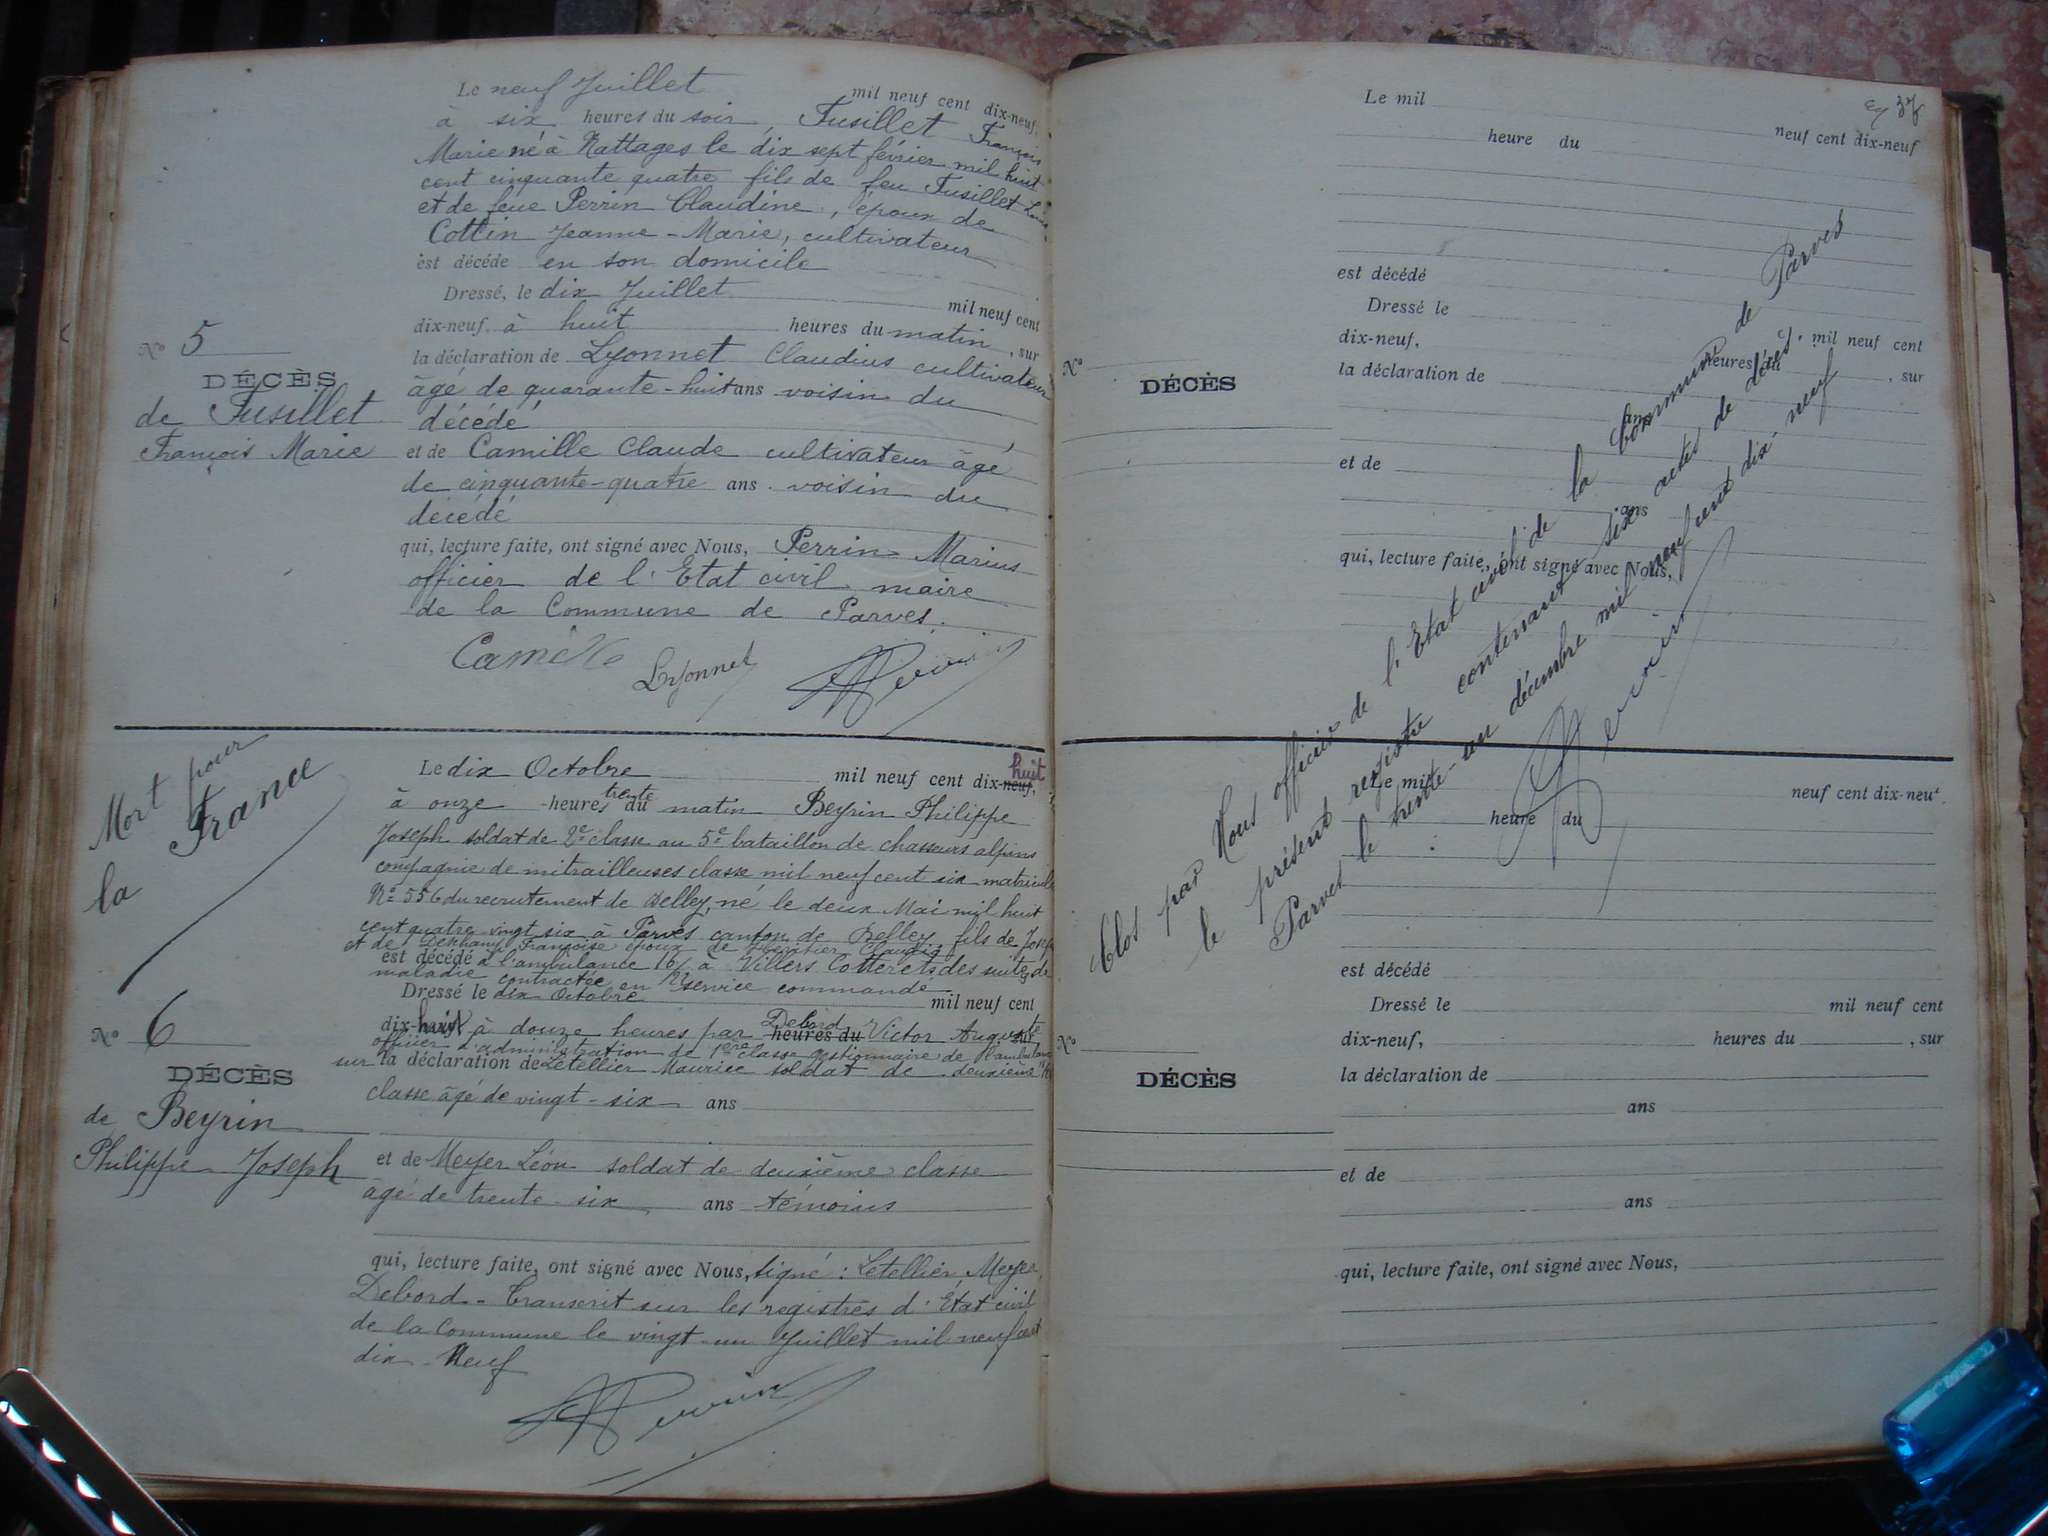 Le neuf Juillet mil neuf cent dix-neuf,
à six heures du soir, Fusillet François
Marie né à Nattages le dix sept février mil huit
cent cinquante quatre fils de feu Fusillet
et de feue Perrin Claudine, époux de
Cottin Jeanne-Marie, cultivateur
est décédé en son domicile
Dressé, le dix Juillet mil neuf cent
dix-neuf, à huit heures du matin, sur
la déclaration de Lyonnet Claudius cultivateur
âgé de quarante-huit ans voisin du
décédé
et de Camille Claude cultivateur âgé
de cinquante-quatre ans voisin du
décédé
qui, lecture faite, ont signé avec Nous, Perrin Marius
officier de l'Etat civil maire
de la Commune de Parves.
Camille Lyonnet Perrin
No 5
DÉCÈS
de Fusillet
François Marie
Mort pour
la France
No 6
DÉCÈS
de Beyrin
Philippe Joseph
Le dix Octobre mil neuf cent dix-neuf, huit
à onze heures trente du matin Beyrin Philippe
Joseph soldat de 2e classe au 5e bataillon de chasseurs alpins
compagnie de mitrailleuses classe mil neuf cent six matricule
No 556 du recrutement de Belley, né le deux Mai mil huit
cent quatre vingt six à Parves canton de Belley fils de Joseph
et de Françoise époux de Claudia
est décédé à l'ambulance 16/ à Villers Cotterets des suites de
maladie contractée en service commandé
Dressé le dix Octobre mil neuf cent
dix-huit à douze heures par heures du Debord Victor Auguste
officier d'administration de 1ère classe gestionnaire de l'ambulance
sur la déclaration de Letellier Maurice soldat de deuxième
classe âgé de vingt-six ans
et de Meyer Léon soldat de deuxième classe
âgé de trente-six ans témoins
qui, lecture faite, ont signé avec Nous, signé : Letellier, Meyer,
Debord - Transcrit sur les registres d'Etat civil
de la Commune le vingt-un Juillet mil neuf cent
dix-Neuf
Perrin
37
Le mil neuf cent dix-neuf
heure du
est décédé
Dressé le mil neuf cent
dix-neuf, heures du , sur
la déclaration de
ans
et de
ans
qui, lecture faite, ont signé avec Nous,
No
DÉCÈS
Clos par Nous officier de l'Etat civil de la Commune de Parves
le présent registre contenant six actes de décès.
Parves le trente-un décembre mil neuf cent dix-neuf
Perrin
Le mil neuf cent dix-neuf.
heure du
est décédé
Dressé le mil neuf cent
dix-neuf, heures du , sur
No
DÉCÈS
la déclaration de
ans
et de
ans
qui, lecture faite, ont signé avec Nous,